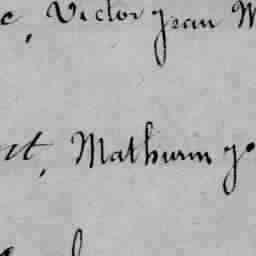 e, Victor Jean M
et, Mathurin Jo